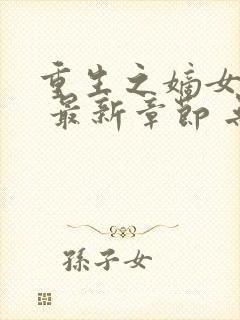 重生之嫡女
最新章節
孫子女